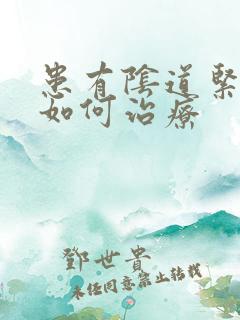 患有陰道緊
如何治療
鄧世貴
未經同意禁止轉載